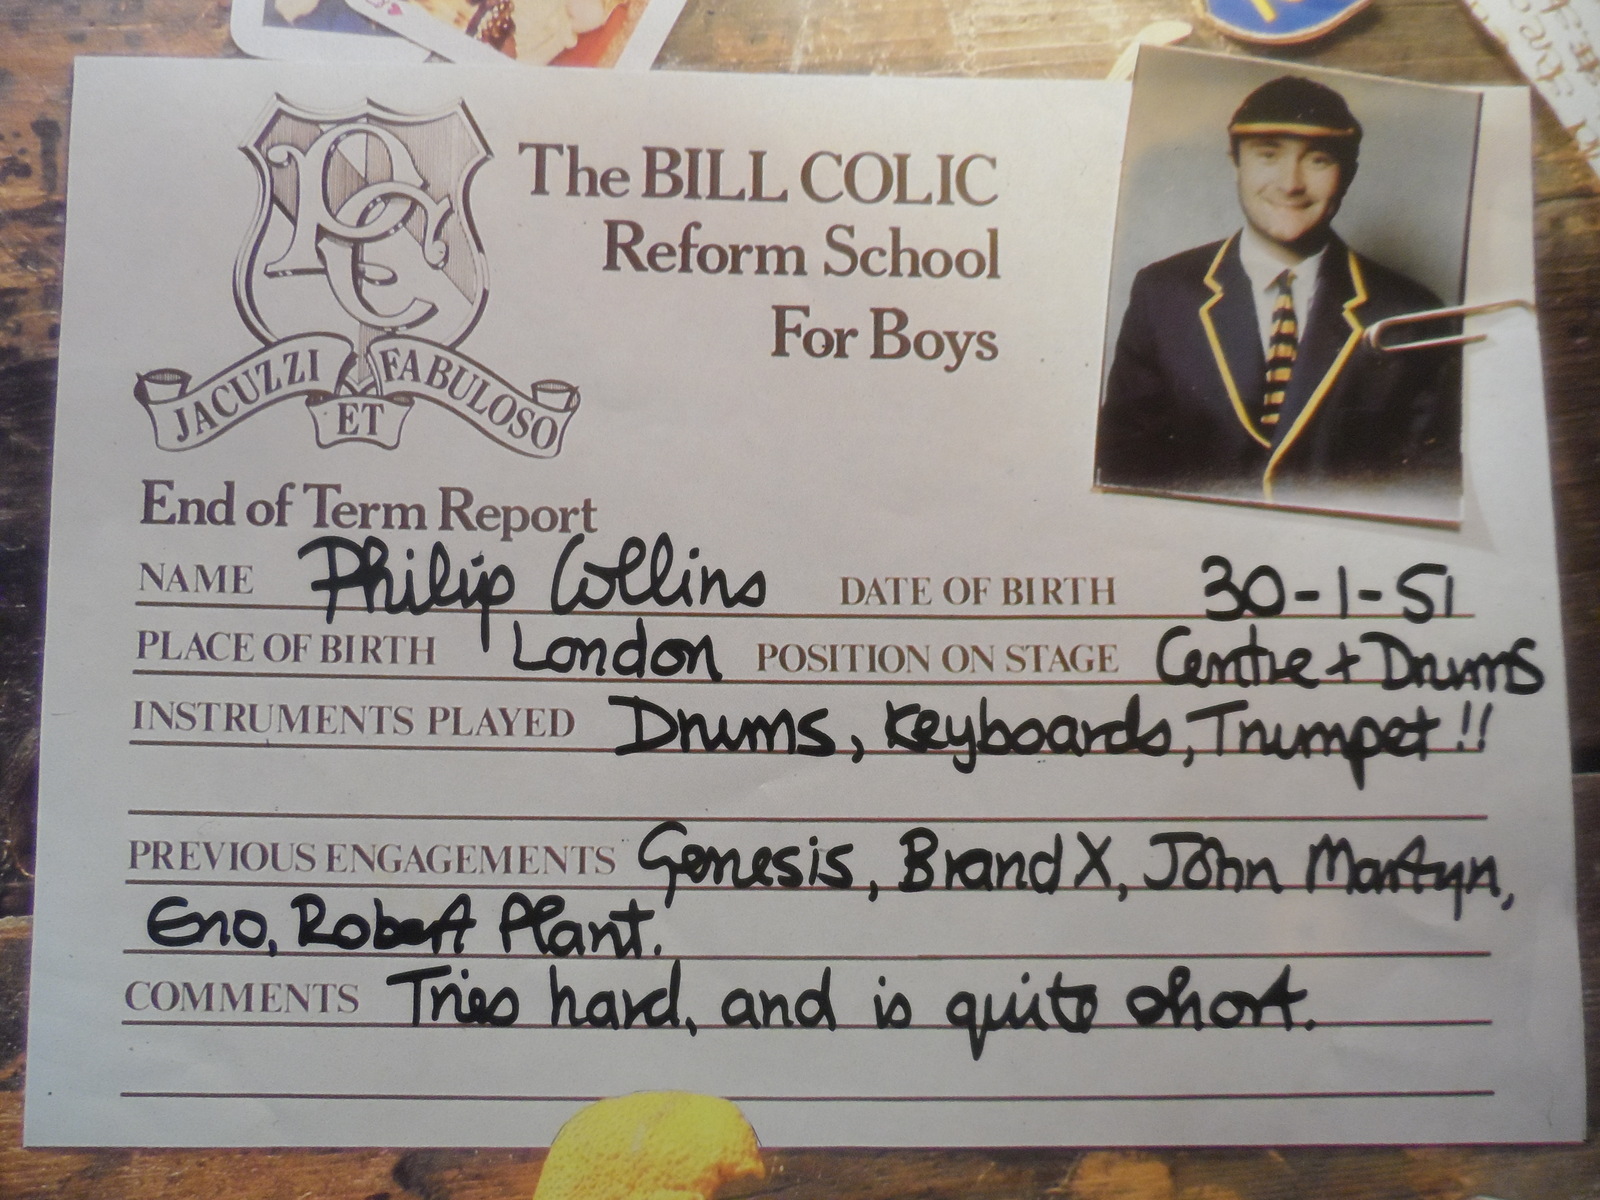 PC
JACUZZI ET FABULOSO
The BILL COLIC
Reform School
For Boys
End of Term Report
NAME Philip Collins DATE OF BIRTH 30-1-51
PLACE OF BIRTH London POSITION ON STAGE Centre + Drums
INSTRUMENTS PLAYED Drums, Keyboards, Trumpet!!
PREVIOUS ENGAGEMENTS Genesis, Brand X, John Martyn,
Eno, Robert Plant.
COMMENTS Tries hard, and is quite short.